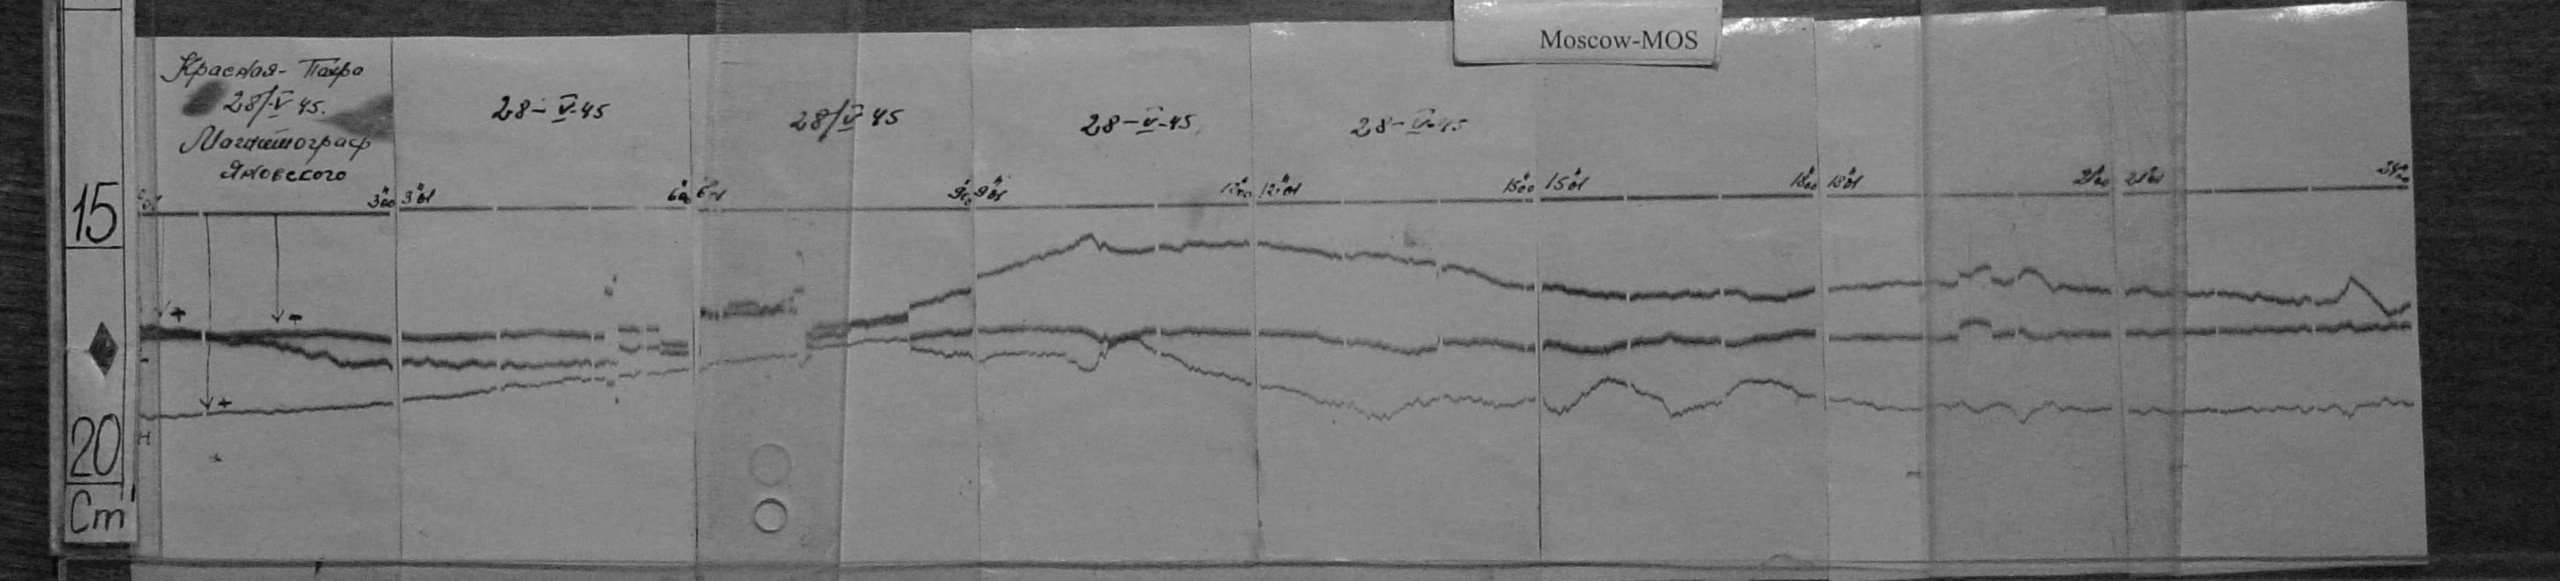 Moscow-MOS
Красная-Пахра
28/V 45.
Магнитограф
Яновского
28-V-45
28/V 45
28-V-45
28-V-45
15
20
Cm
3ʰ00 3ʰ01
6ʰ00
9ʰ01
12ʰ00 12ʰ01
15ʰ00 15ʰ01
18ʰ00 18ʰ01
21ʰ00 21ʰ01
+
-
+
H